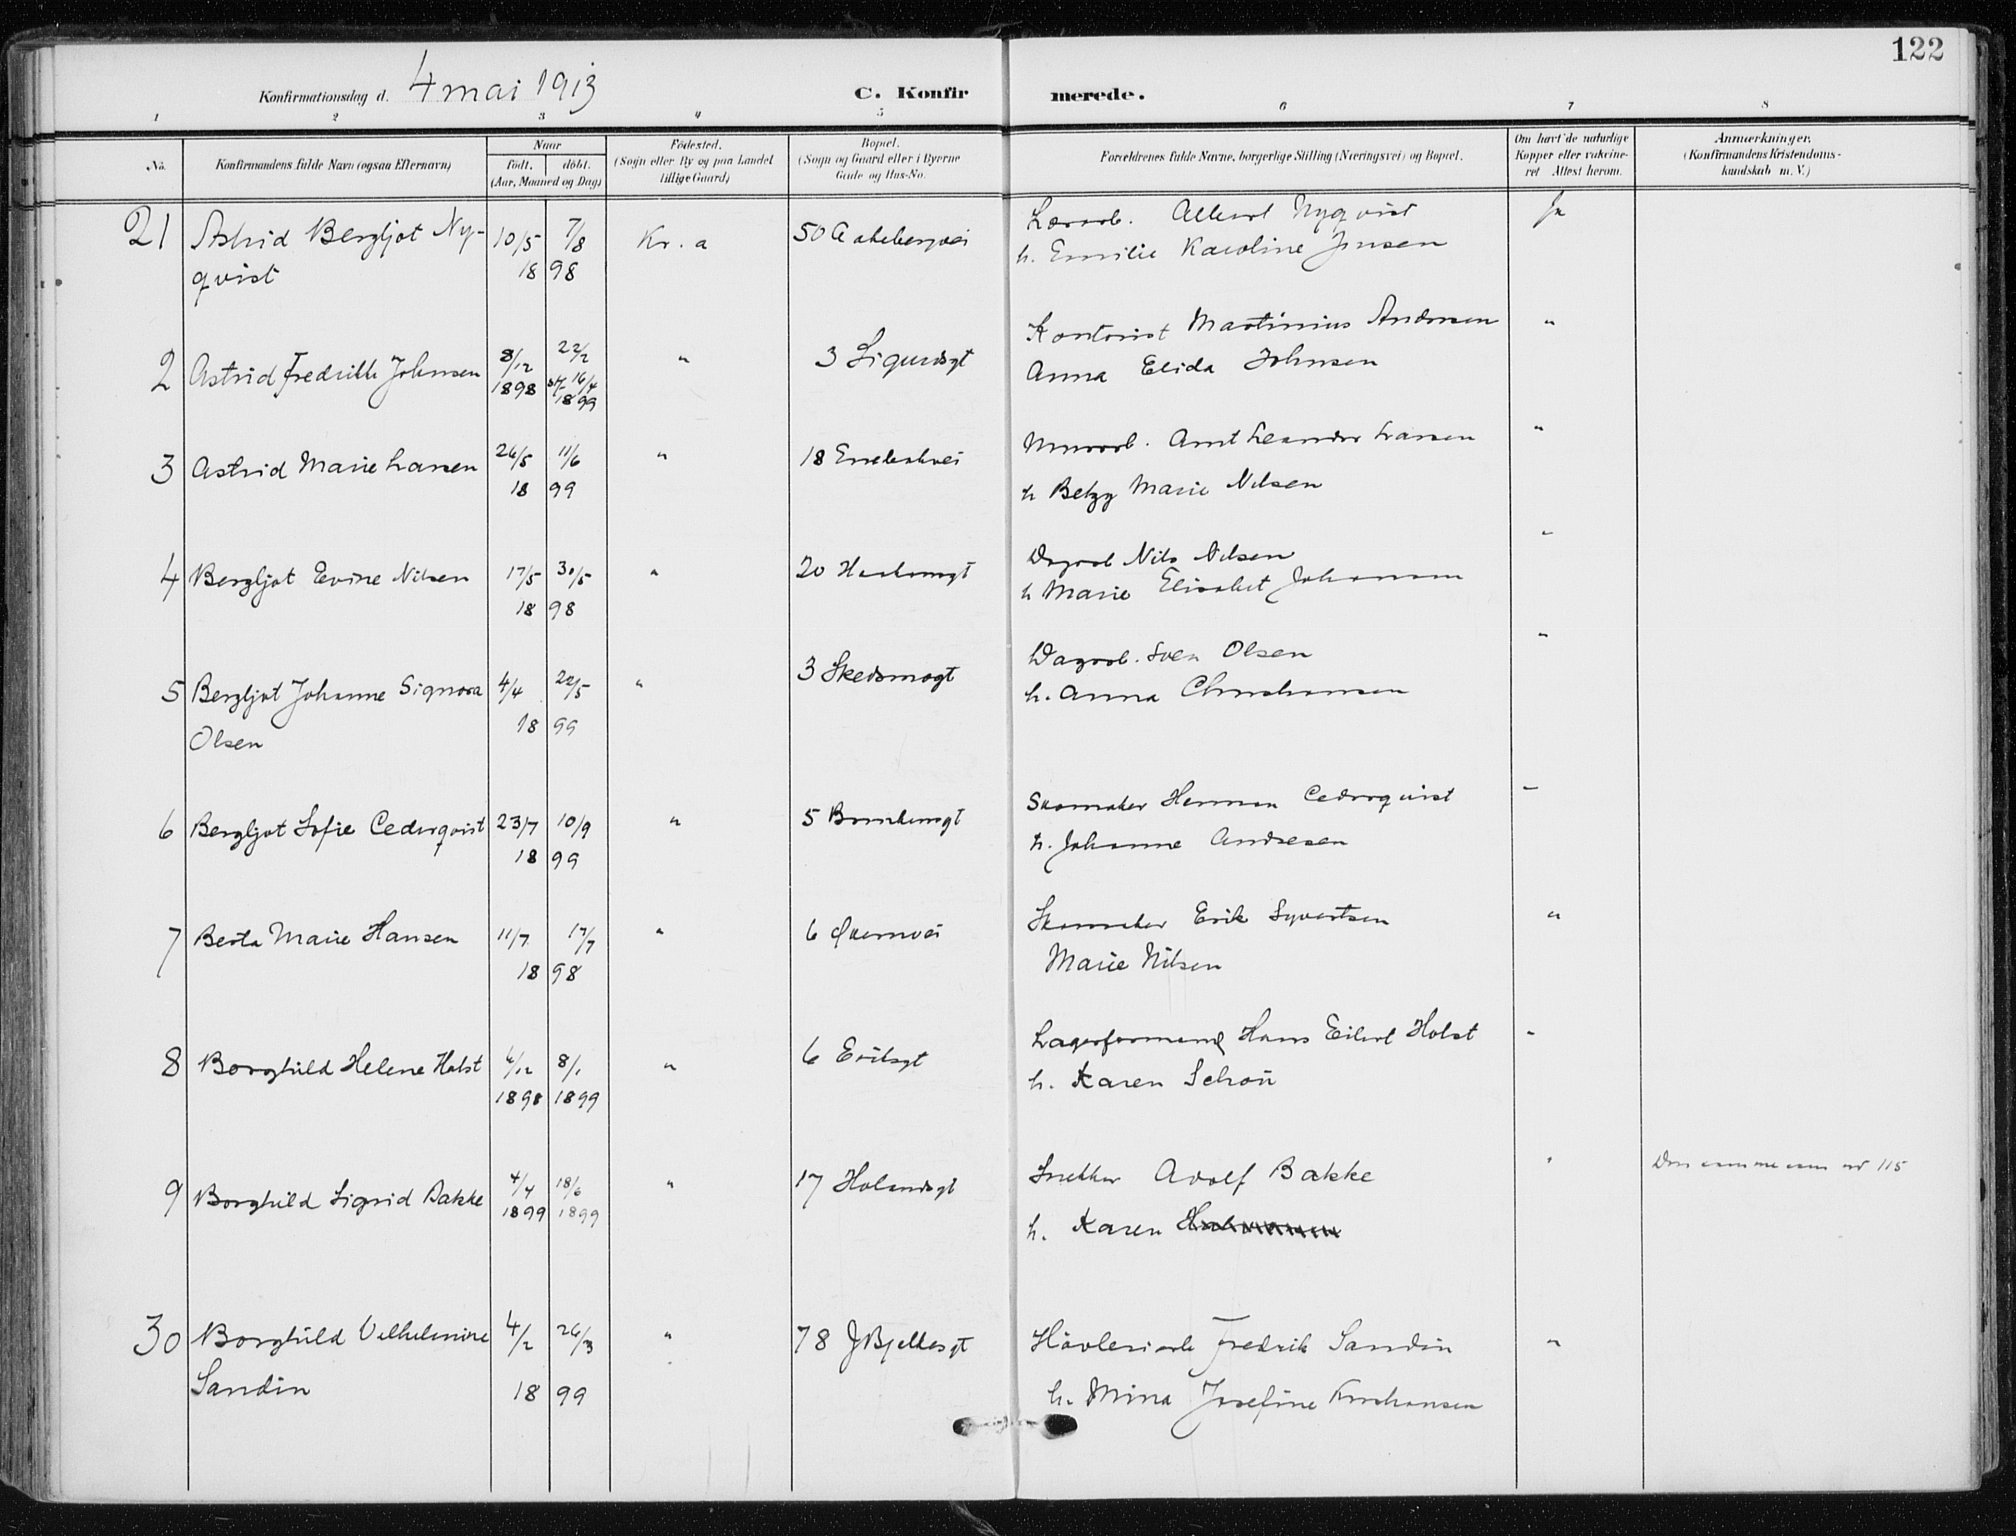 122
Konfirmationsdag d. 4 mai 1913 C. Konfirmerede.
1 2 3 4 5 6 7 8
No. Konfirmandens fulde Navn (ogsaa Efternavn) Naar født. døbt. (Aar, Maaned og Dag) Fødested. (Sogn eller By og paa Landet tillige Gaard) Bopæl. (Sogn og Gaard eller i Byerne Gade og Hus-No. Forældrenes fulde Navne, borgerlige Stilling (Næringsvei) og Bopæl. Om havt de naturlige Kopper eller vakcineret Attest herom. Anmærkninger. (Konfirmandens Kristendomskundskab m. V.)
21 Astrid Bergljot Ny- 10/5 7/8 Kr. a 50 Aakebergvei Albert Nyqvist Ja
qvist 18 98 h. Emilie Karoline Jensen
2 Astrid Fredrikke Johnsen 8/12 1898 22/2 st 16/4 1899 " 3 Sigurdsgt Kontorist Martinius Andersen "
Anna Elida Johnsen
3 Astrid Marie Larsen 26/5 11/6 " 18 Enebakvei Murarb. Arnt Leander Larsen "
18 99 h Betzy Marie Nilsen
4 Bergljot Evine Nilsen 17/5 30/5 " 20 Dagarb Nils Nilsen "
18 98 h Marie Elisabet Johansen
5 Bergljot Johanne Signora 4/4 22/5 " 3 Skedsmogt Dagarb. Sven Olsen "
Olsen 18 99 h. Anna Christiansen
6 Bergljot Sofie Cederqvist 23/7 10/9 " 5 Skomaker Herman Cederqvist "
18 99 h. Johanne Andresen
7 Berta Marie Hansen 11/7 17/7 " 6 Økernvei Skomaker Erik Syvertsen "
18 98 Marie Nilsen
8 Borghild Helene Holst 6/12 8/1 " 6 Eriksgt Lagerformand Hans Eilert Holst "
1898 1899 h. Karen Schøn
9 Borghild Sigrid Bakke 4/4 18/6 " 17 Holandsgt Snekker Adolf Bakke " Den samme som nr 115
1899 1899 h. Karen
30 Borghild Vilhelmine 4/2 26/3 " 78 J Bjelkesgt Høvleriarb Fredrik Sandin "
Sandin 18 99 h. Mina Josefine Kristiansen